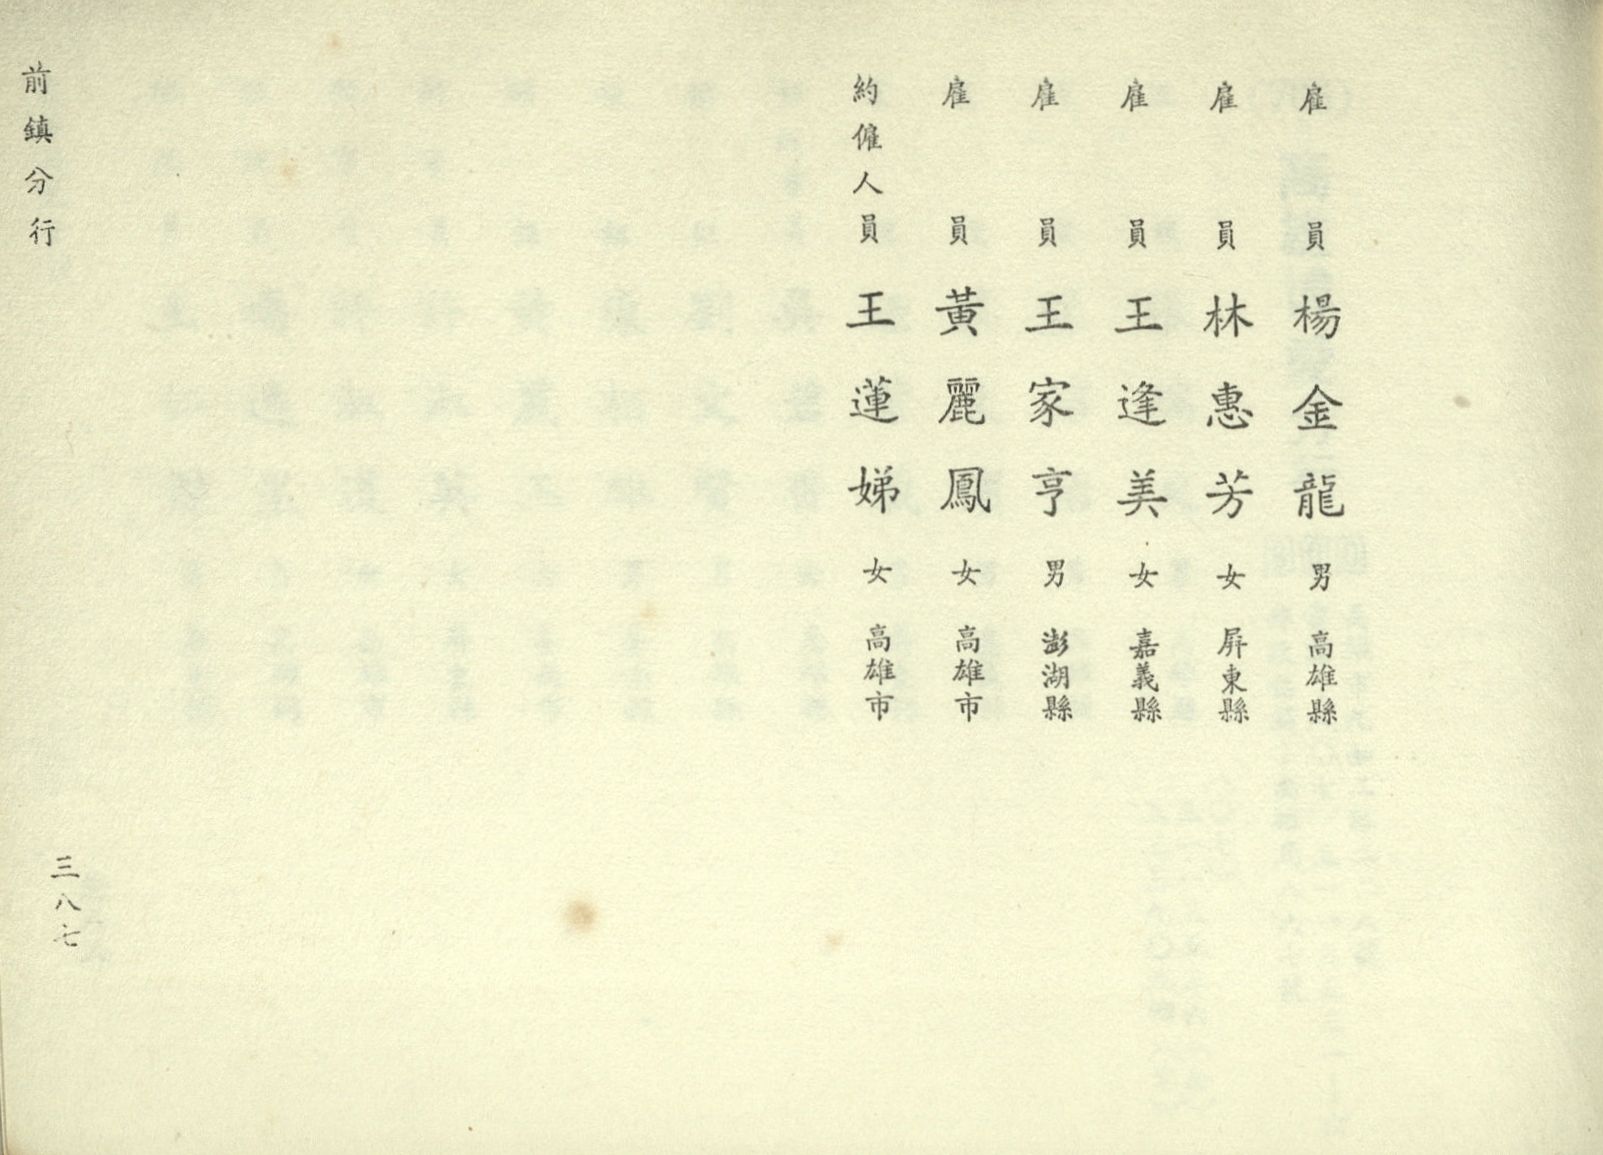 雇員楊金龍男高雄縣
雇員林惠芳女屏東縣
雇員王逢美女嘉義縣
雇員王家亨男澎湖縣
雇員黃麗鳳女高雄市
約僱人員王蓮娣女高雄市
前鎮分行
三八七